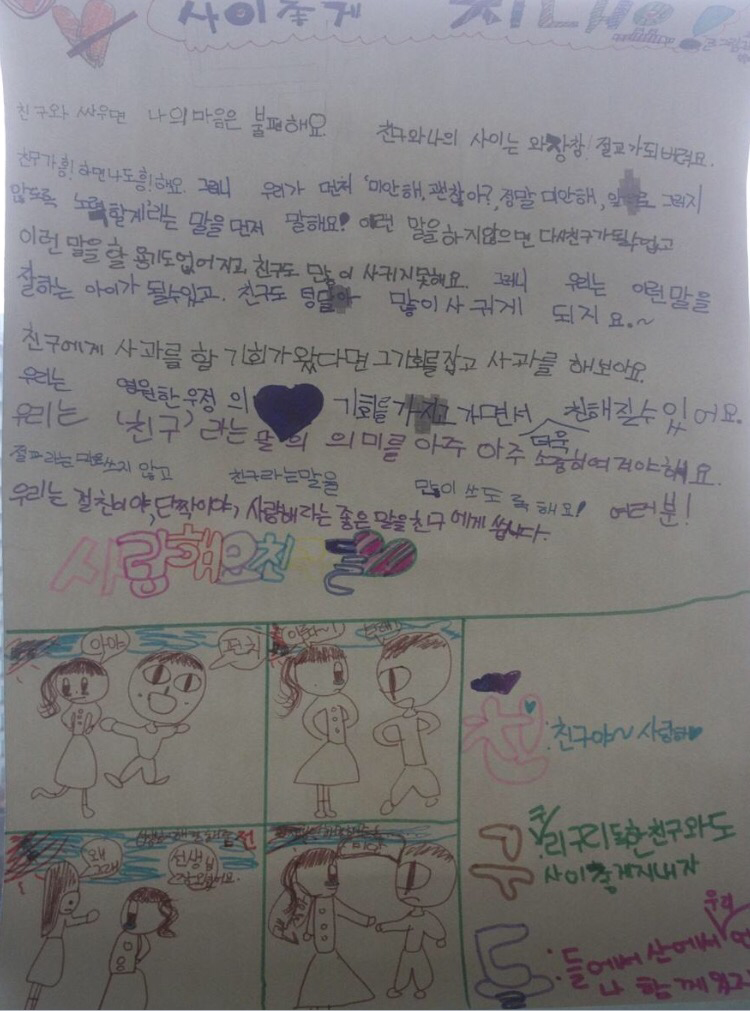 사이좋게 지내요
친구와 싸우면 나의마음은 불편해요 친구와나의 사이는 와장창! 절교가되버려요.
친구가흥! 하면나도흥!해요. 그러니 우리가 먼저 '미안해, 괜찮아?, 정말 미안해, 그러지
않도록 노력할게'라는 말을먼저 말해요! 이런 말을하지않으면 다시친구가될수없고
이런 말을 할 용기도없어지고, 친구도 많이 사귀지못해요. 그러니 우리는 이런말을
잘하는 아이가 될수있고. 친구도 많이사귀게 되지요.~
친구에게 사과를 할 기회가 왔다면 그기회를잡고 사과를 해보아요.
우리는 영원한우정의 기회를 가지고가면서 친해질수있어요.
우리는 '친구'라는 말의 의미를 아주 아주 더욱 소중히여겨야해요.
절교라는 쓰지 않고 친구라는말을 많이 쓰도록해요! 여러분!
우리는 절친이야, 단짝이야, 사랑해라는 좋은 말을친구에게 씁니다.
사랑해요친구들
아야
펀치
선생님
미안
친:친구야~ 사랑해
구:구리구리한친구와도
사이좋게지내자
들:들에서 산에서 우리
나 함께